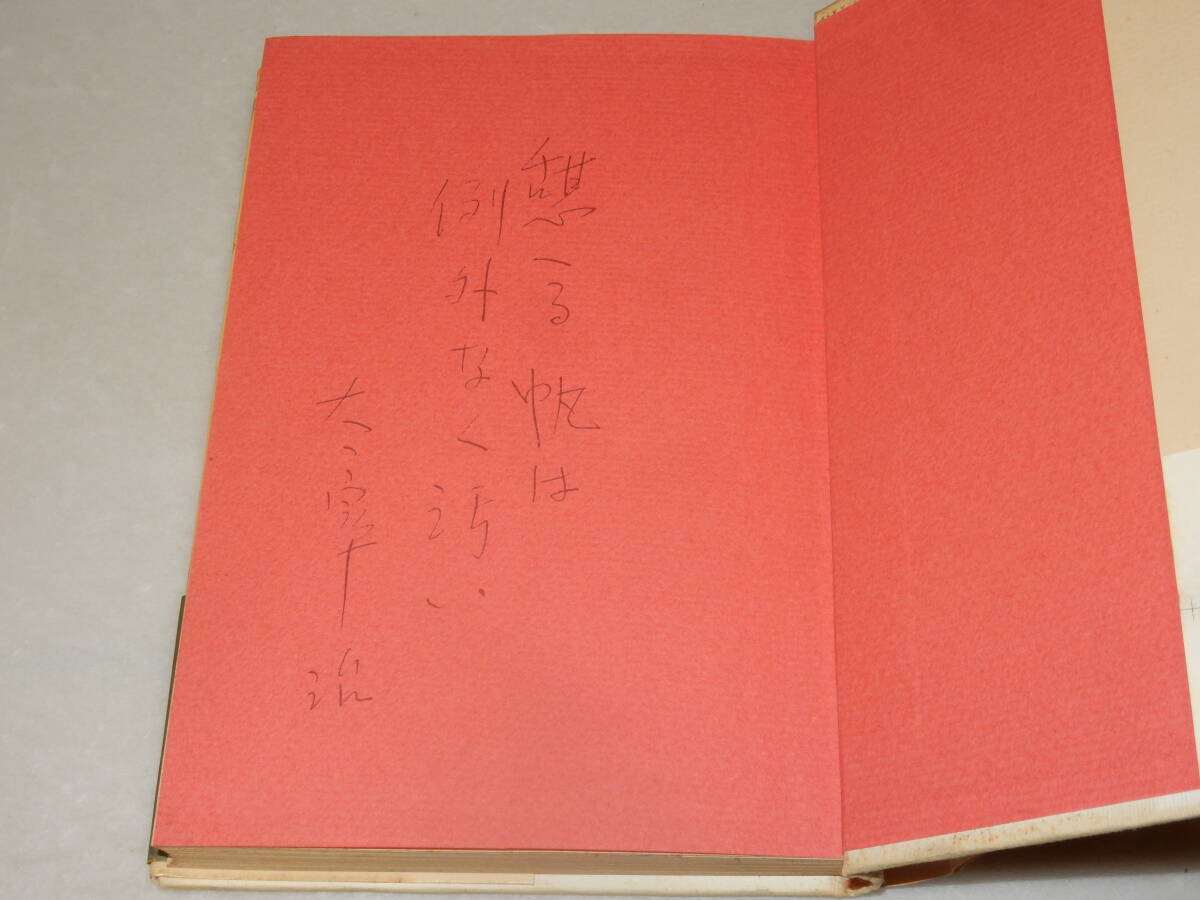 憩へる帆は
例外なく汚い
太宰治